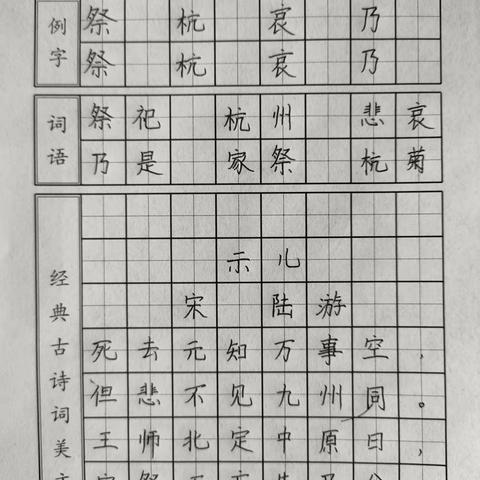 例字
祭 杭 哀 乃
祭 杭 哀 乃
词语
祭祀 杭州 悲哀
乃是 家祭 杭菊
经典古诗词美文
示儿
宋 陆游
死去元知万事空，
但悲不见九州同。
王师北定中原日，